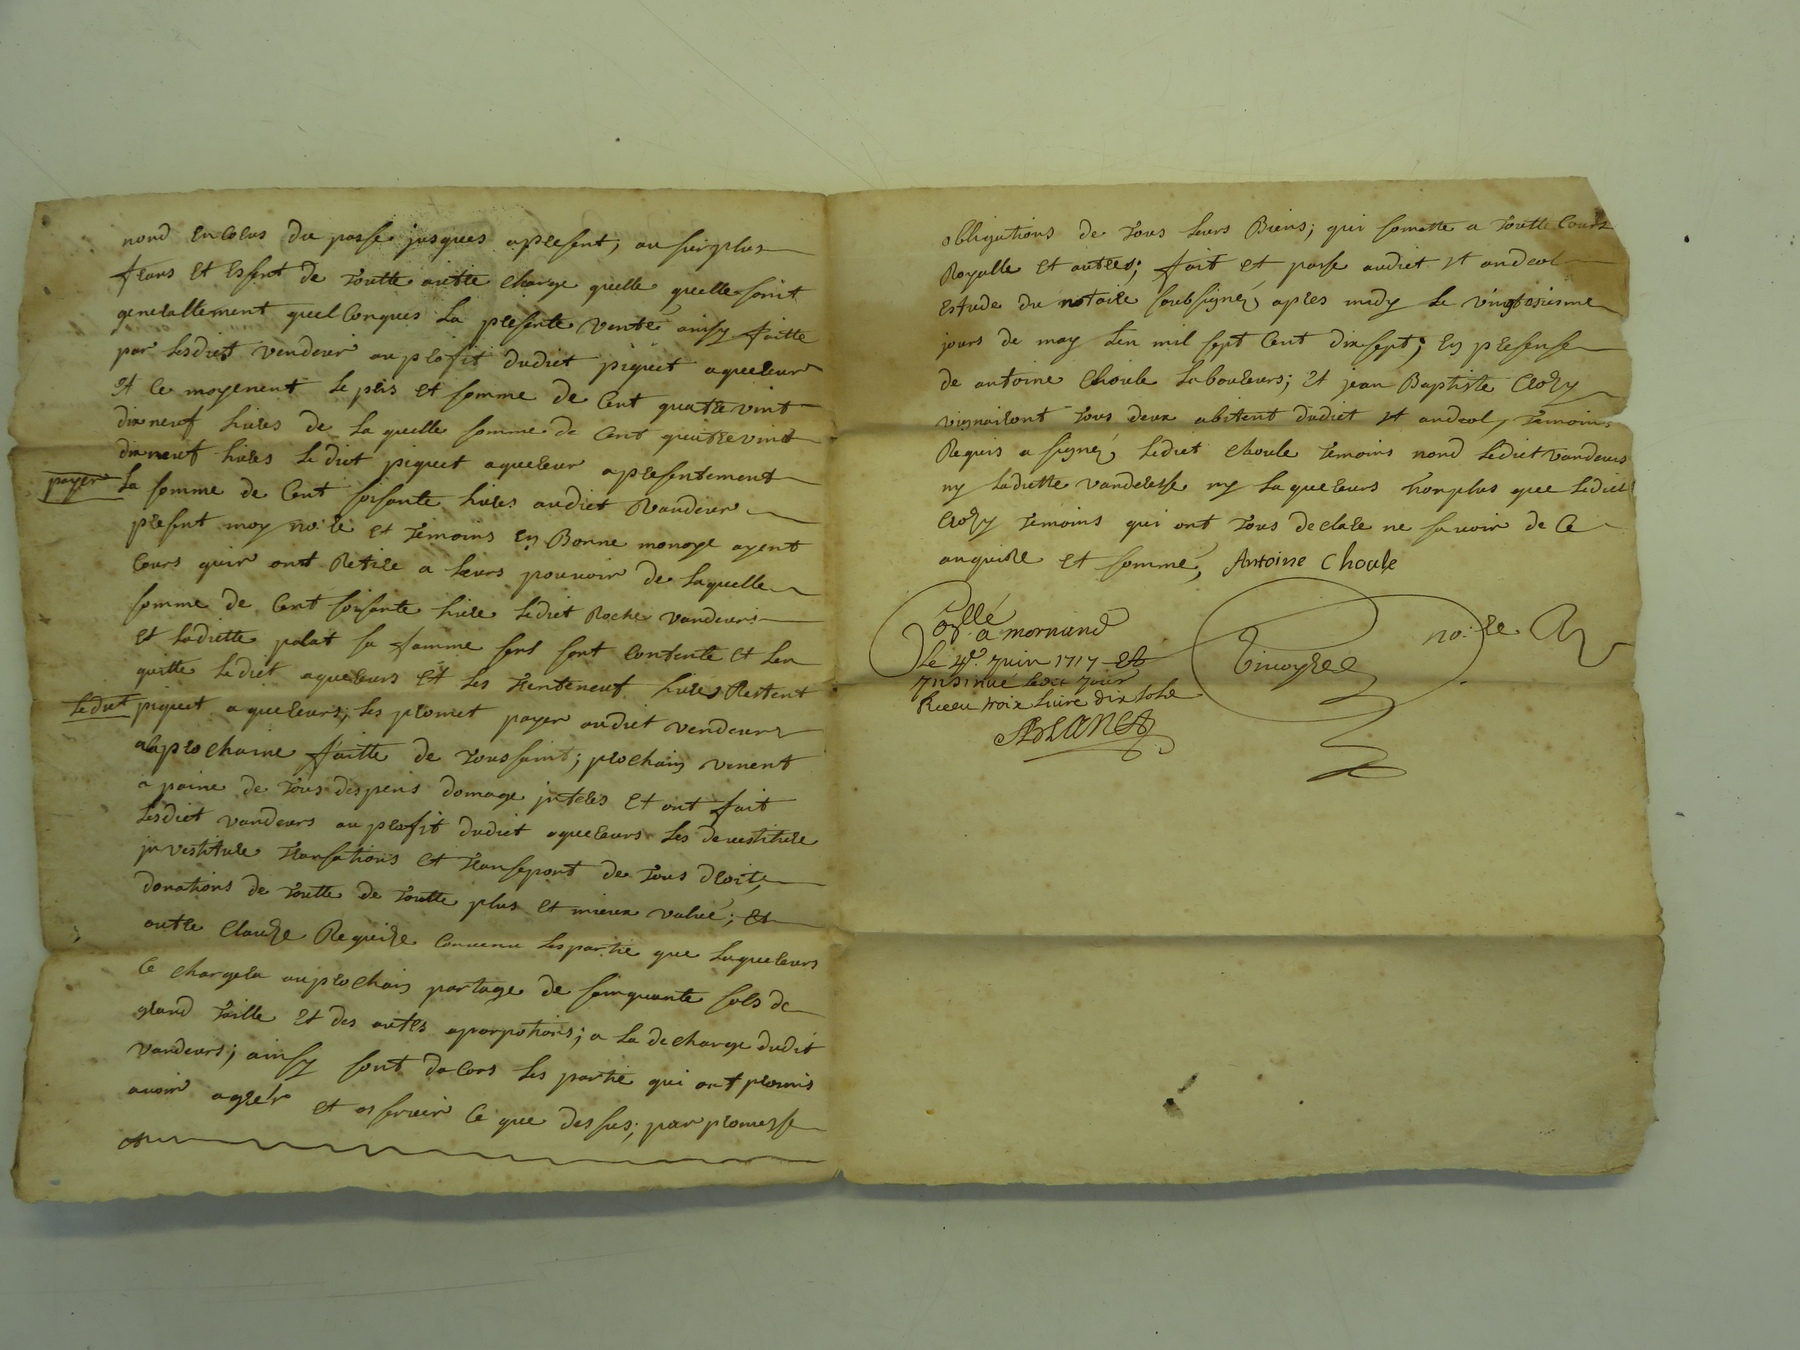 nord encoeus du passe jusques apresent, au surplus
frans et Essent de toutte autre charge quelle quelle soint
generallement quel Conques La presente vente ainsy faitte
par Lesdiets vendeur au profit dudiet piquet aquereur
et Ce moyenent Le pris et somme de Cent quatrevint
dixneuf livres de La quelle somme de Cent quatrevint
dixneuf livres Le diet piquet aquereur apresentement
payer La somme de Cent soisante livres audiet Vandeur
present moy no:re et Temoins En Bonne monoye ayent
Cours quir ont Retire a Leurs pouvoir de Laquelle
somme de Cent soisante livre Lediet Roche vandeurs
Et Ladiette palat sa famme sens sont Contente et Len
quitte Lediet aquereurs Et Les Tenteneuf livres Restent
Lediet piquet aquereurs; Les promet payer audiet vendeurs
alaprochaine faitte de Toussaint; prochain venent
a paine de Tous despens domage jnteres Et ont fait
Lesdiet vandeurs au profit dudiet aquereurs Les devestiture
jnvestiture Transations et Transeport de Tous droits
donations de Toutte de Toutte plus et mieux value; et
autre Clauze Requize Convenu Lespartie que Laquereurs
Ce chargera auprochain partage de sinquante sols de
grand Taille Et des autres aporpotions; a La decharge dudit
vandeurs; ainsy sont dacors Les partie qui ont promis
avoir agreér et osserveir Ce que dessus; par promesse
et
obligations de Tous Leurs Biens; qui somette a Toutte Cours
Royalle et autres; fait et passe audiet st andeol
Estude du notaire soubsigné, apres midy Le vingtosiesme
jours de may Len mil sept Cent dixsept; En presense
de antoine Choule Laboureurs; Et jean Baptiste Crozy
vignairont Tous deux abitent dudiet st andeol, Temoins
Requis a signez Lediet Choule Temoins nond Lediet vandeurs
ny Ladiette vanderesse ny Laquereurs nonplus que Lediet
Crozy Temoins qui ont Tous declare ne savoir de Ce
anquire et sommé, Antoine Choule
a mornand
Le 4e. Juin 1717 et
Jnsinué ledit Jour
Receu troix livre dix sols
no:re